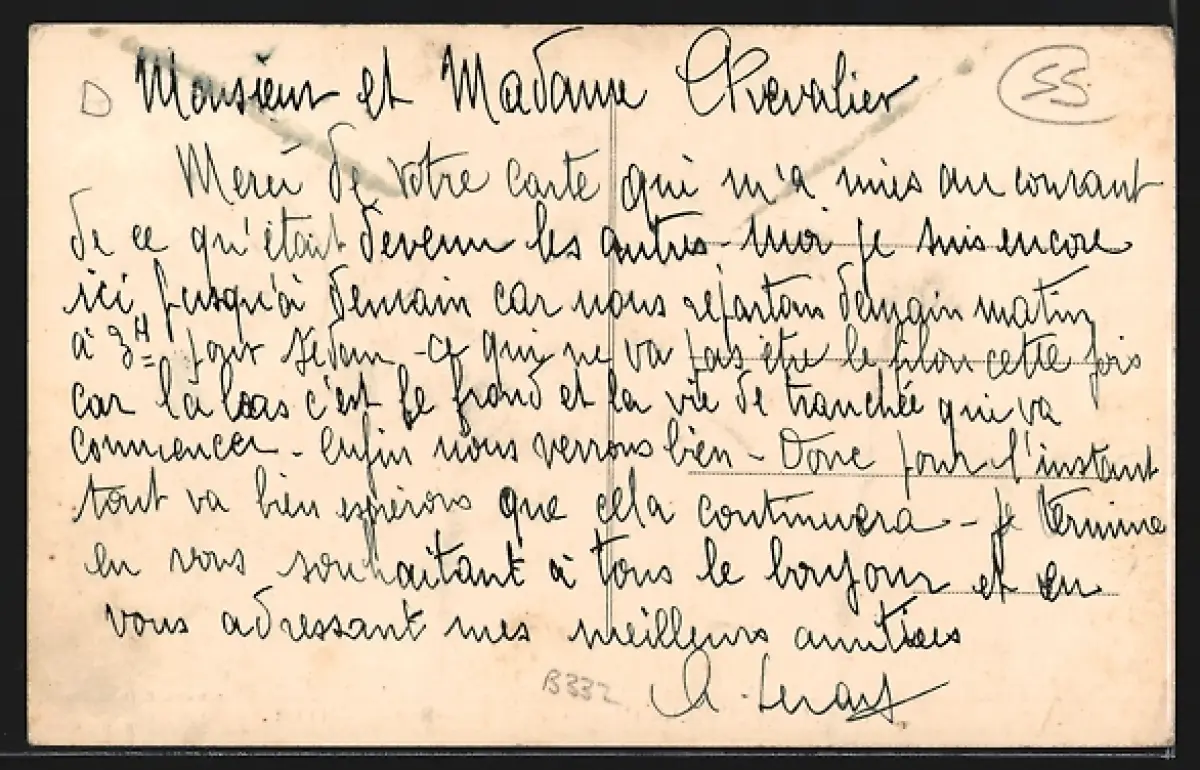 Monsieur et Madame Chevalier
55
Merci de votre carte qui m'a mis au courant
de ce qu'était devenu les autres - Moi je suis encore
ici jusqu'à demain car nous repartons demain matin
à 3H pour Sedan - ce qui ne va pas être le filon cette fois
car là bas c'est le froid et la vie de tranchée qui va
commencer - enfin nous verrons bien - Donc pour l'instant
tout va bien espérons que cela continuera - je termine
en vous souhaitant à tous le bonjour et en
vous adressant mes meilleurs amitiés
B332